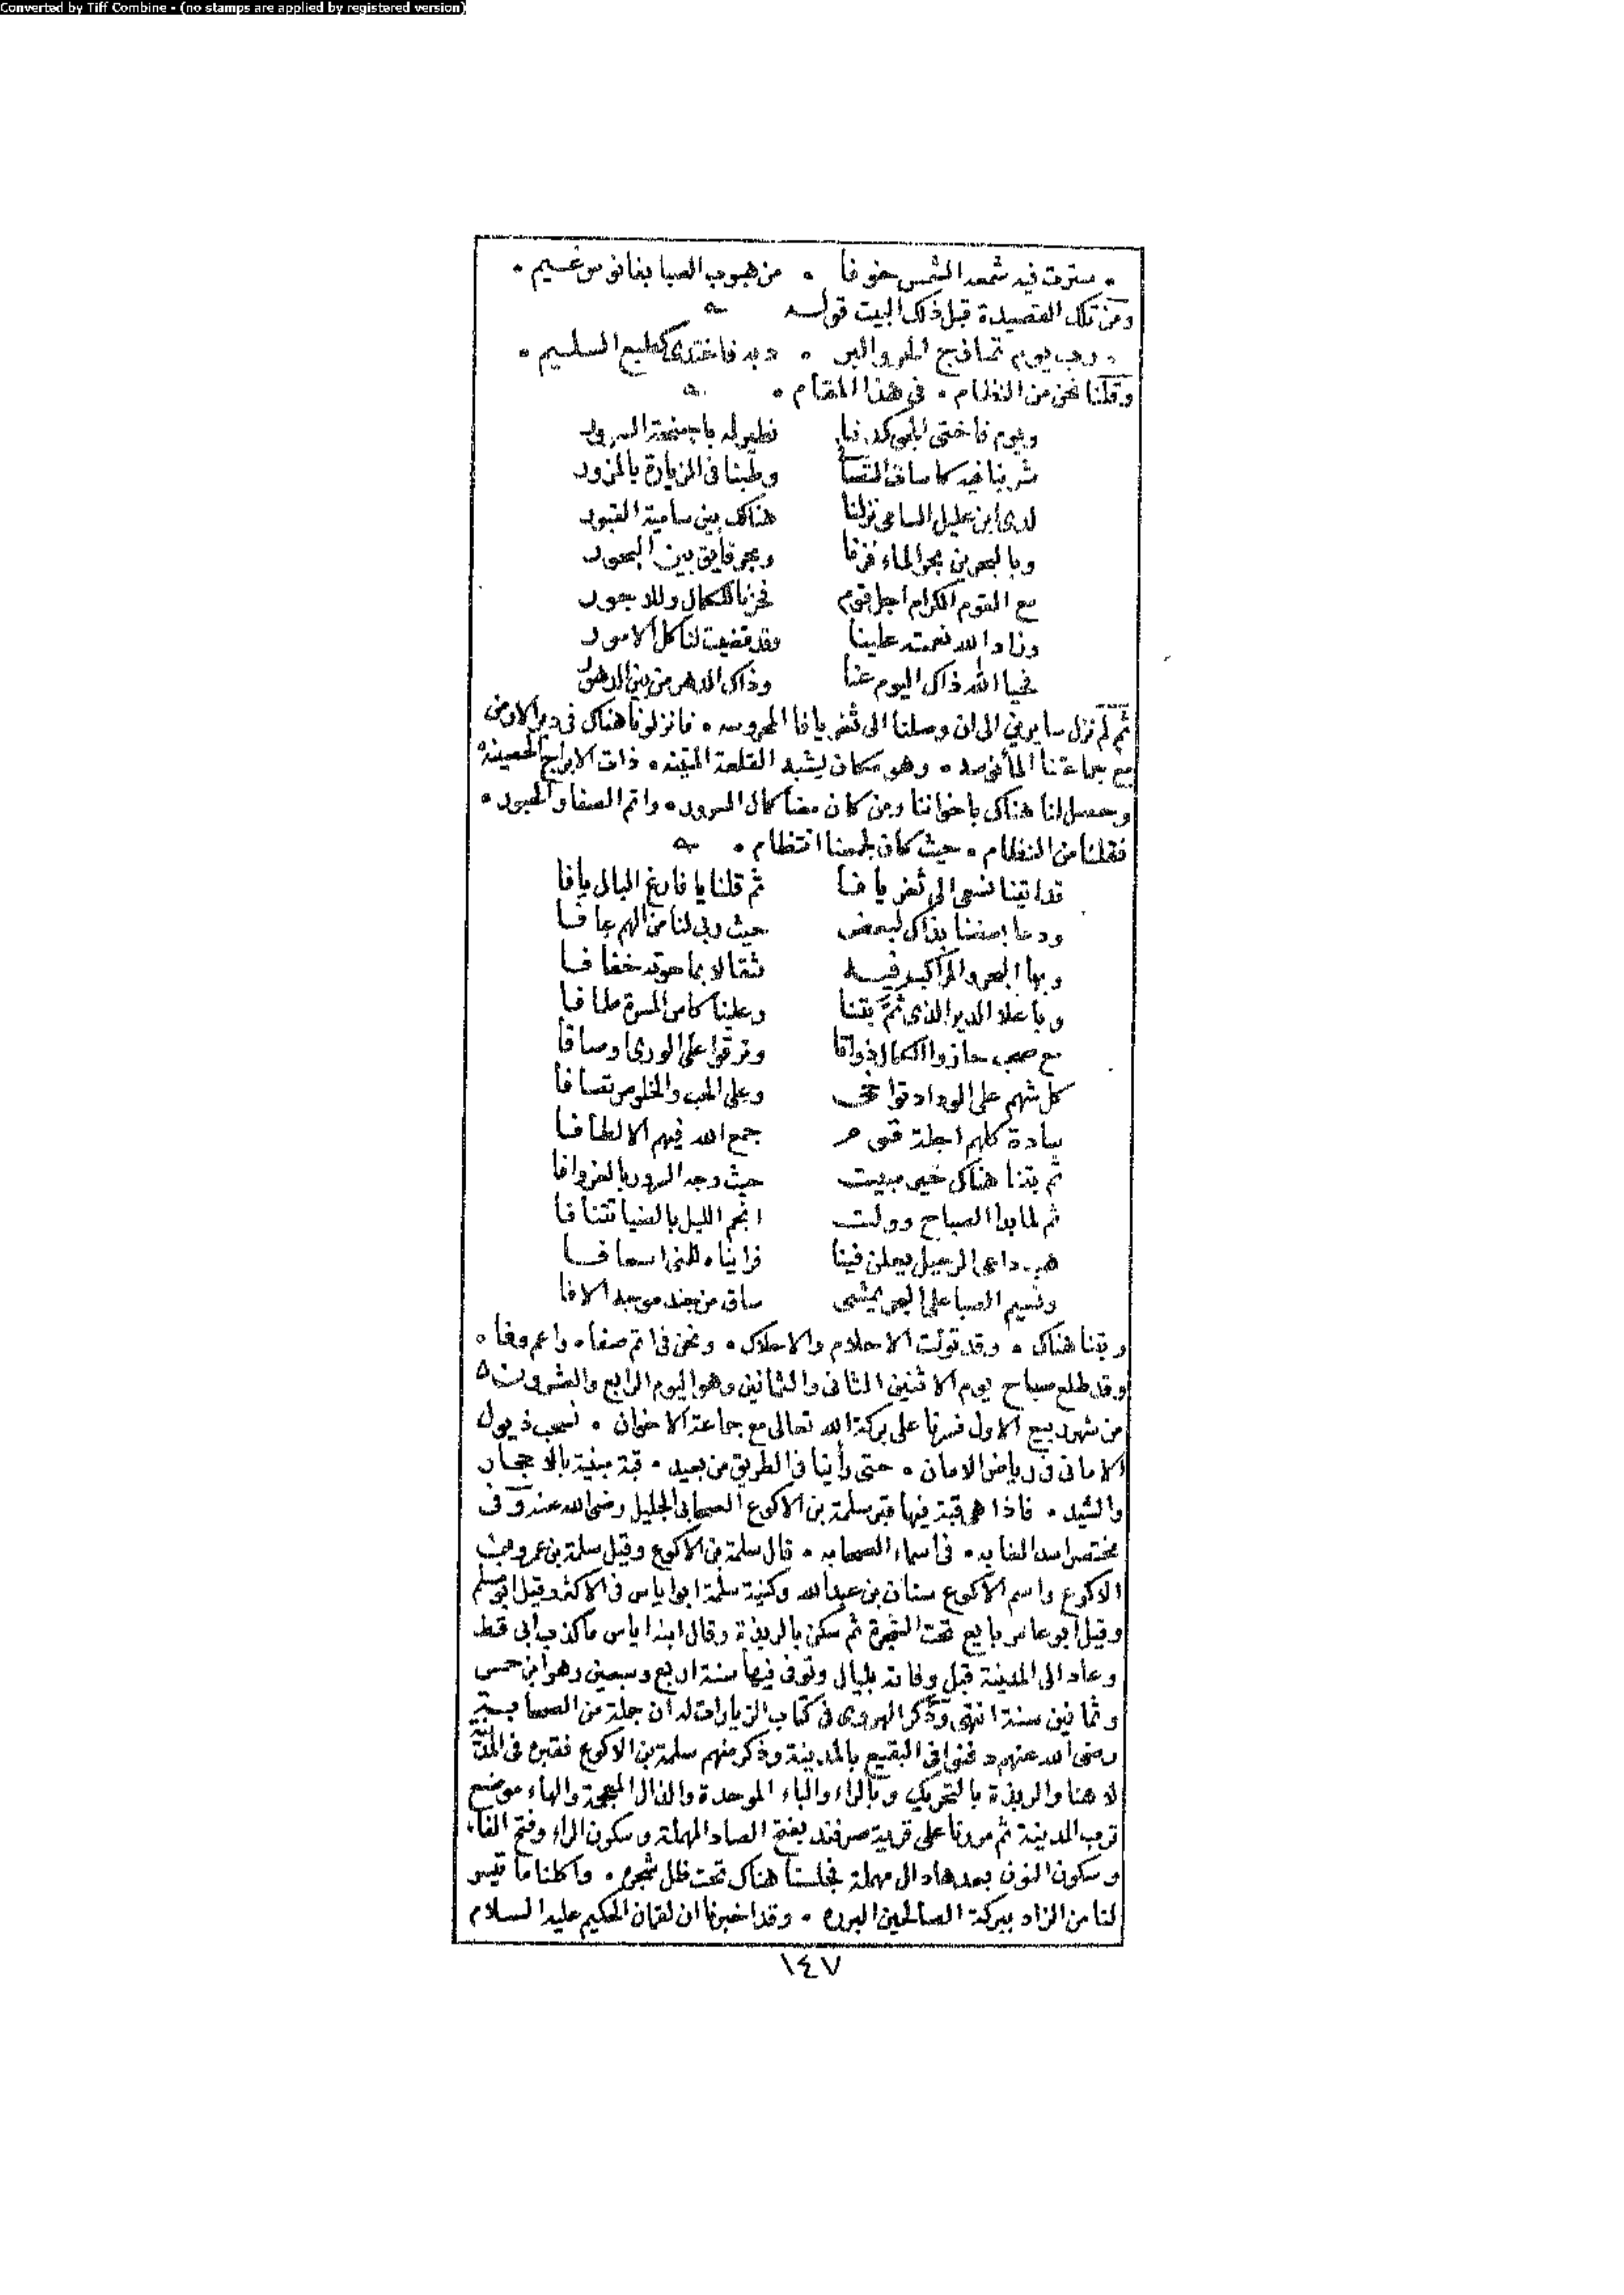 Converted by Tiff Combine - (no stamps are applied by registered version)
• سترت فيه شمعة الشمس خوفا • من هبوب الصبا بفانوس غيم •
ومن تلك القصيدة قبل ذلك البيت قوله
• رب يوم تمازج الحر والبر • د به فاغتدى كطبع السليم •
وقلنا نحن من النظام • في هذا المقام •
ويوم فاختي الجو كدنا نطير له باجنحة السرور
شربنا فيه كاسات التصا وطبنا في الزيارة بالمزور
لدى ابن عليل السامي نزلنا هناك بين سامية القبور
وبالبحرين بحر الماء فزنا وبحر فايق بين البحور
مع القوم الكرام اجل قوم فحزنا للكمال وللاجور
وزاد الله نعمته علينا وقد قضيت لنا كل الامور
فحيا الله ذاك اليوم عنا وذاك الدهر من بين الدهور
ثم لم نزل سايرين الى ان وصلنا الى ثغر يافا المحروسه • فانزلونا هناك في دير الارمن
مع جماعتنا المأنوسه • وهو مكان يشبه القلعة المتينه • ذات الابراج الحصينه
وحصل لنا هناك باخواننا ومن كان معنا كمال السرور • واتم الصفا والحبور •
فقلنا من النظام • حيث كان لجمعنا انتظام •
قد اتينا نسعى الى ثغر يافا ثم قلنا يا فارغ البال يافا
ودعا بعضنا بذاك لبعض حيث ربي لنا من الهم عافا
وبها البحر والمراكب فيه ثقالا بما حوته خفافا
وباعلا الدير الذي ثم بتنا وعلينا كاس المسرة طافا
مع صحب حازوا الكمال ذواتا وترقوا على الورى اوصافا
كل شهم على الوداد تواخى وعلى الحب والخلوص تصافا
سادة كلهم اجلة قوم جمع الله فيهم الالطافا
ثم بتنا هناك خير مبيت حيث وجه السرور بالعز وافا
ثم لما بدا الصباح وولت انجم الليل بالضيا تتنافا
هب داعي الرحيل يعلن فينا فراينا للمنى اسعافا
ونسيم الصبا على البحر يمشي ساق من جند موجه الافا
وبتنا هناك • وقد تولت الاحلام والاحلاك • ونحن في اتم صفا • واعم وفا •
وقد طلع صباح يوم الاثنين الثاني والثمانين وهو اليوم الرابع والعشرون
من شهر ربيع الاول فسرنا على بركة الله تعالى مع جماعة الاخوان • نسحب ذيول
الاماني في رياض الامان • حتى رأينا في الطريق من بعيد • قبة مبنية بالاحجار
والشيد • فاذا هي قبة فيها قبر سلمة بن الاكوع الصحابي الجليل رضي الله عنه وفي
مختصر اسد الغابه • في أسماء الصحابه • قال سلمة بن الاكوع وقيل سلمة بن عمرو بن
الاكوع واسم الاكوع سنان بن عبد الله وكنية سلمة ابو اياس في الاكثر وقيل ابو مسلم
وقيل ابو عامر بايع تحت الشجرة ثم سكن بالربذة وقال ابنه اياس ما كذب ابي قط
وعاد الى المدينة قبل وفاته بليال وتوفي فيها سنة اربع وسبعين وهو ابن خمس
وثمانين سنة انتهى وذكر الهروي في كتاب الزيارات له ان جملة من الصحابة
رضي الله عنهم دفنوا في البقيع بالمدينة وذكر منهم سلمة بن الاكوع فقبره في المدينة
لا هنا والربذة بالتحريك وبالراء والباء الموحدة والذال المعجمة والهاء موضع
قرب المدينة ثم مررنا على قرية صرفند بفتح الصاد المهملة وسكون الراء وفتح الفاء
وسكون النون بعدها دال مهملة فجلسنا هناك تحت ظل شجره • واكلنا ما تيسر
لنا من الزاد ببركة الصالحين البرره • وقد اخبرنا ان لقمان الحكيم عليه السلام
١٤٧